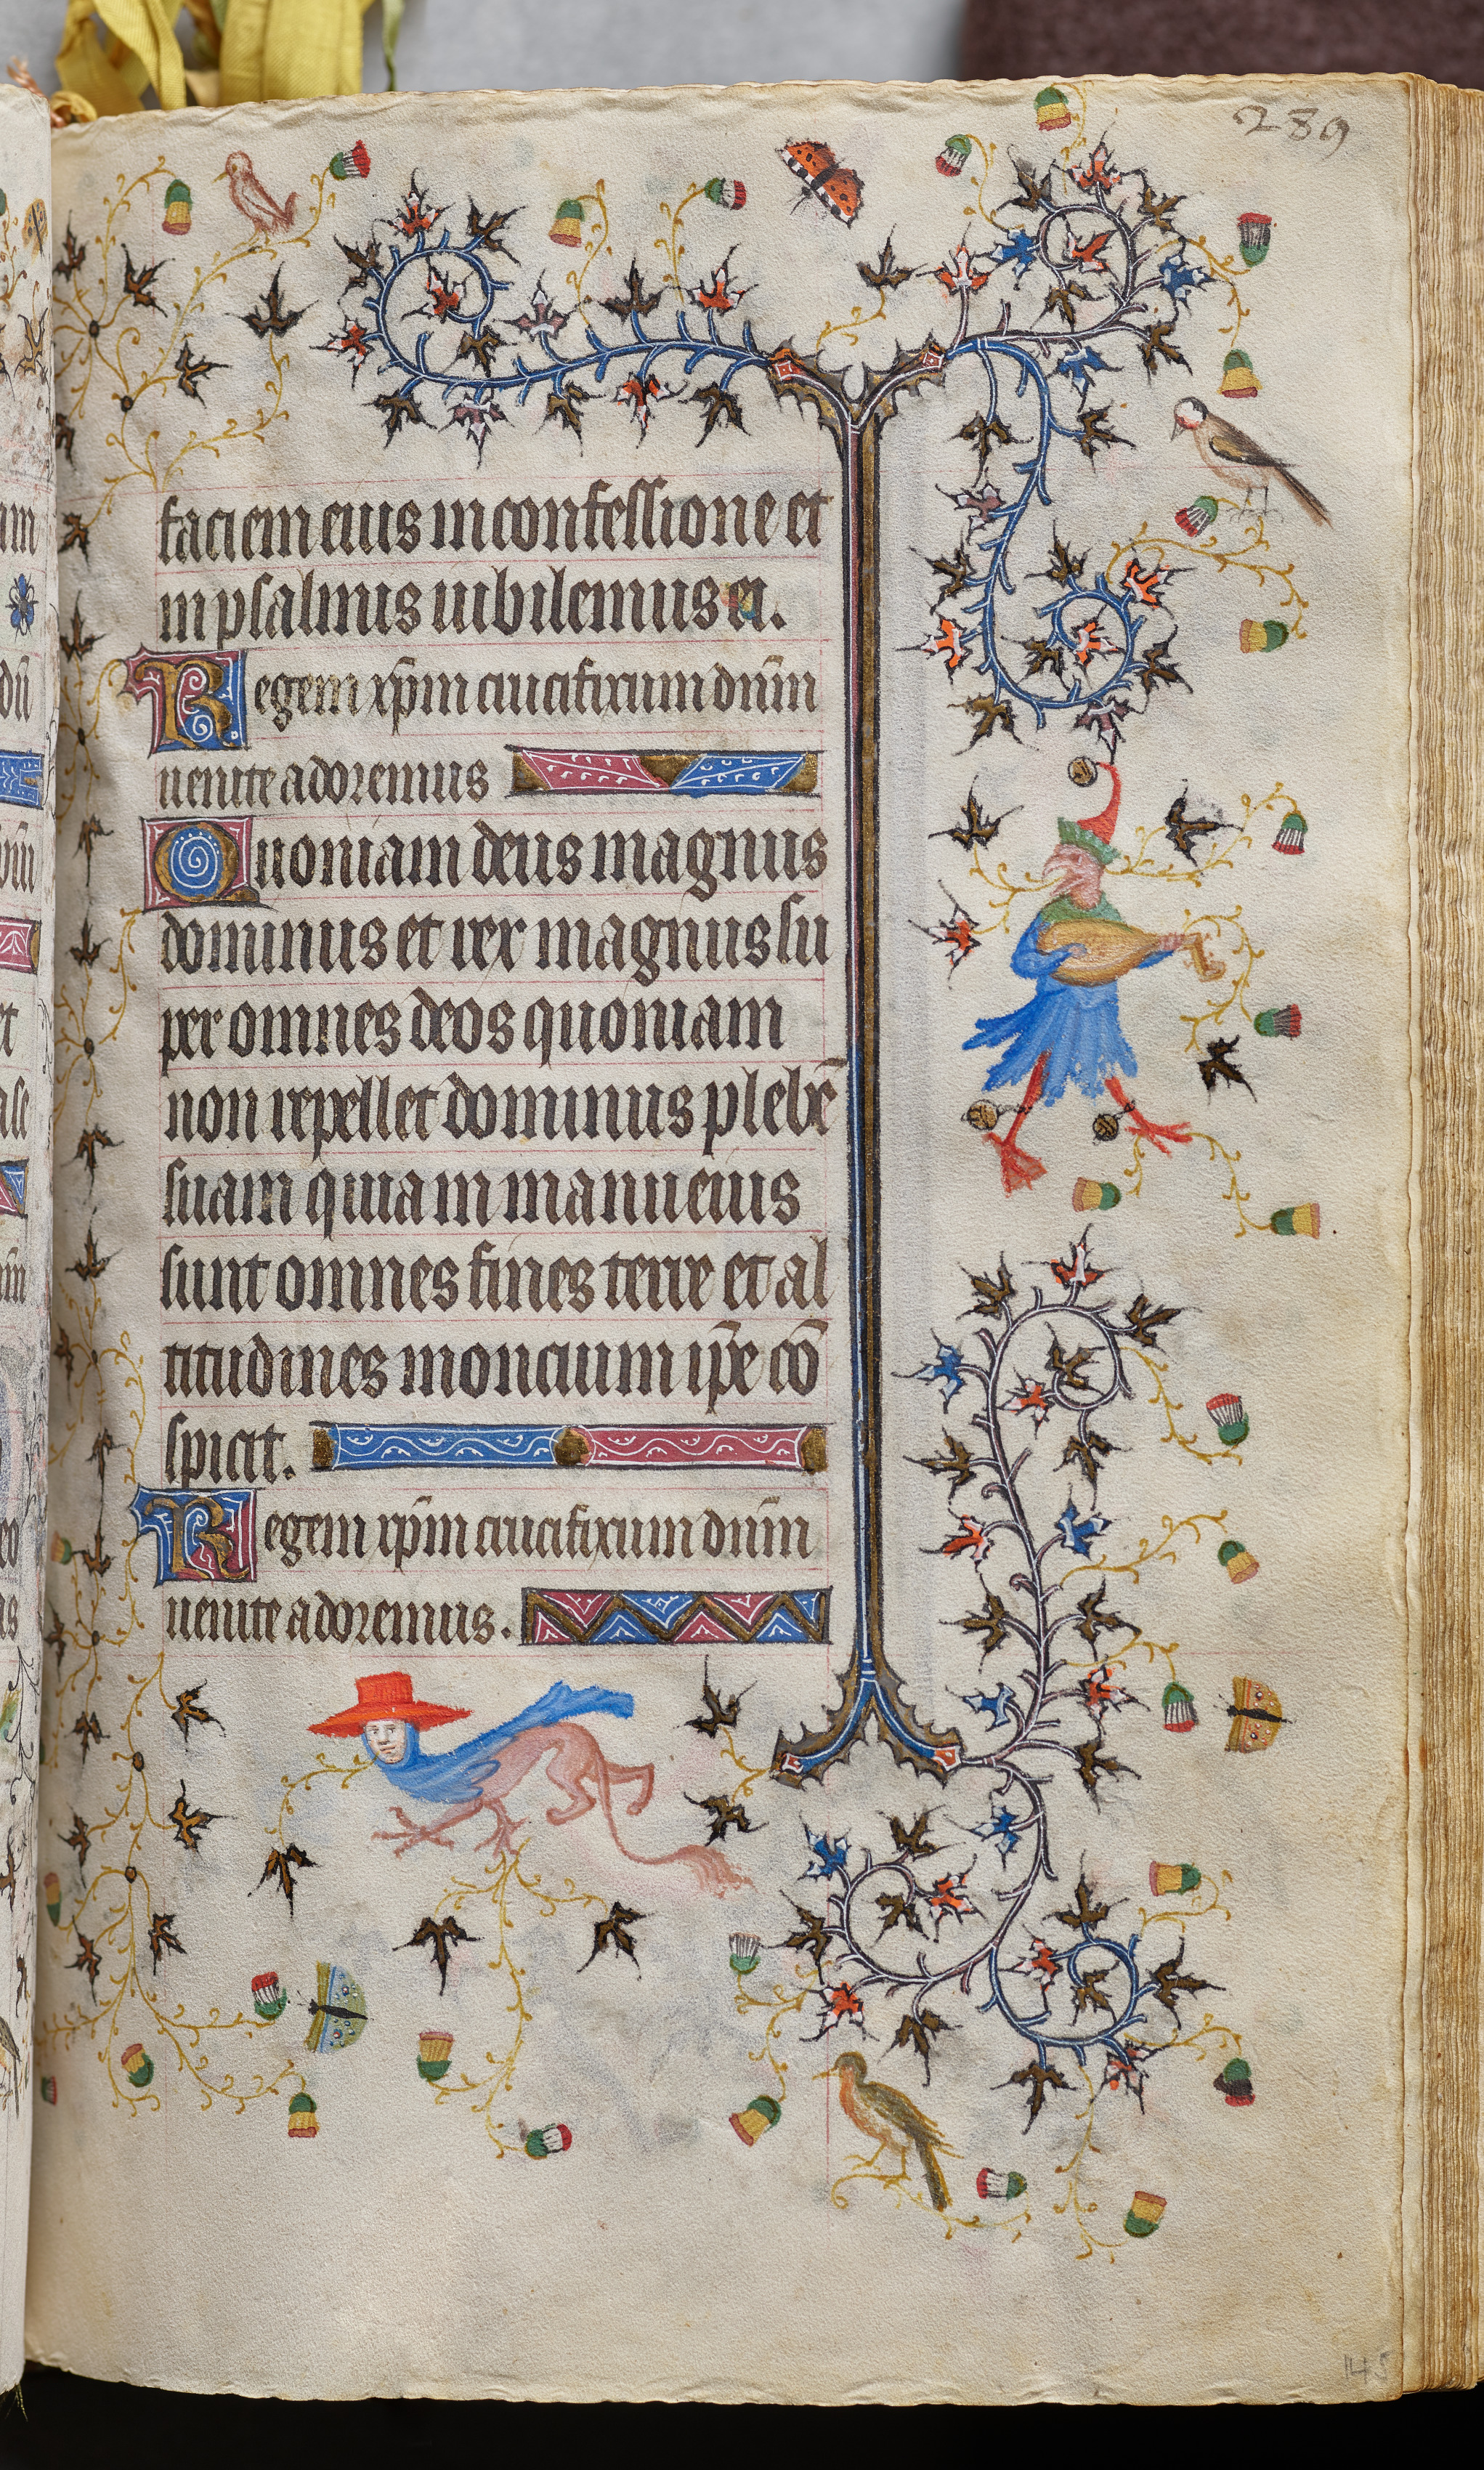 289
faciem eius in confessione et
in psalmis iubilemus ei.
Regem xp̄m crucifixum dn̄m
uenite adoremus
Quoniam deus magnus
dominus et rex magnus su
per omnes deos quoniam
non repellet dominus plebē
suam quia in manu eius
sunt omnes fines terre et al
titudines moncium ip̄e cō
spicit.
Regem xp̄m crucifixum dn̄m
uenite adoremus.
145